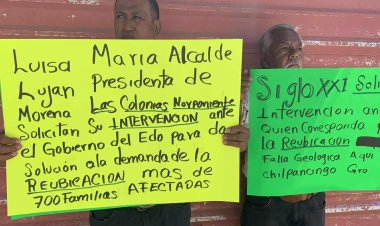 Luisa María Alcalde
Lujan Presidenta de
Morena Las Colonias Norponiente
Solicitan Su INTERVENCION ante
el Gobierno del Edo para da
Solución a la demanda de la
REUBICACION mas de
700 Familias AFECTADAS
Siglo XXI Soli
Intervencion an
Quien Corresponda
la Reubicacion
Falla Geologica Aqui
chilpancingo Gro